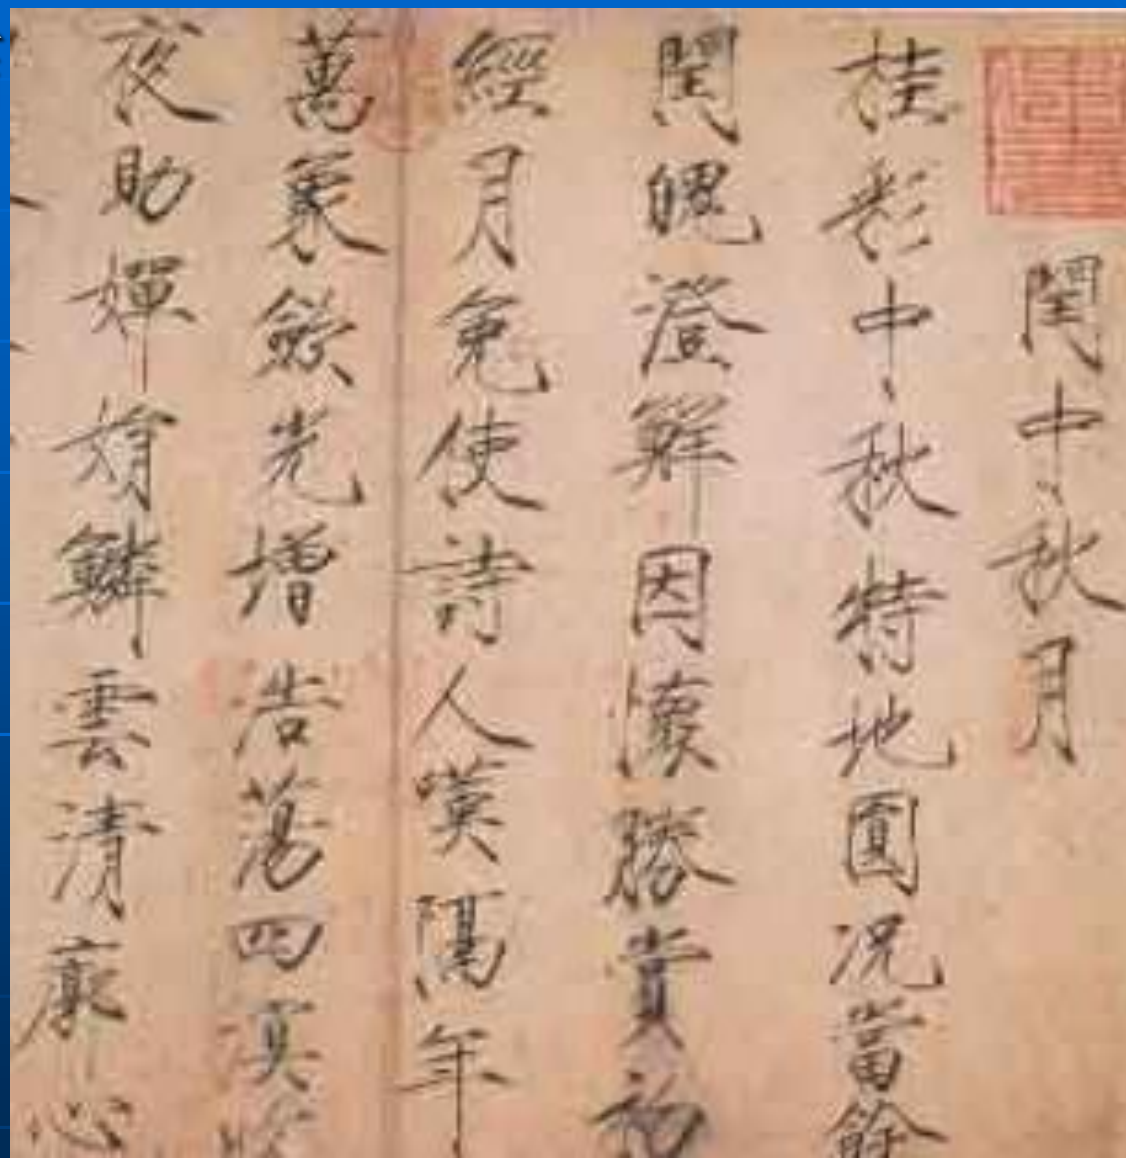 閏中秋月
桂彩中秋特地圓況當餘
閏魄澄鮮因懷勝賞初
經月免使詩人嘆隔年
萬象斂光增浩蕩四溟收
夜助嬋娟鱗雲清廓心